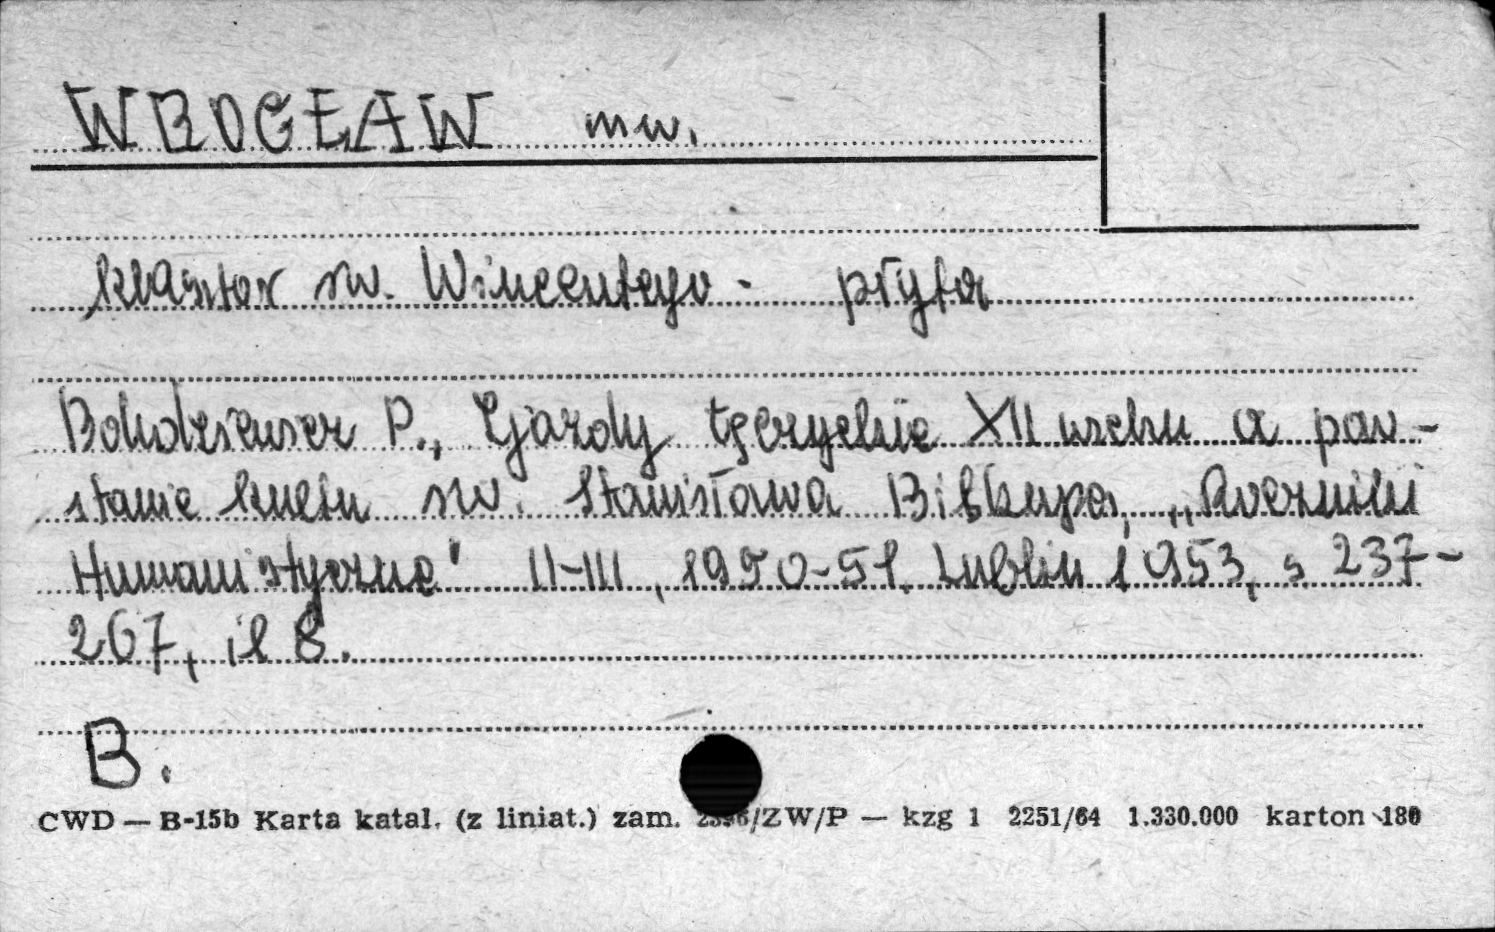 WROCŁAW mw.
klasztor św. Wincentego - płyta
Bohdziewicz P., Zjazdy łęczyckie XII wieku a pow-
stanie kultu św. Stanisława Biskupa, „Roczniki
Humanistyczne" II-III, 1950-51, Lublin 1953, s 237-
267, il 8.
B.
CWD — B-15b Karta katal. (z liniat.) zam. /ZW/P — kzg 1 2251/64 1.330.000 karton 180